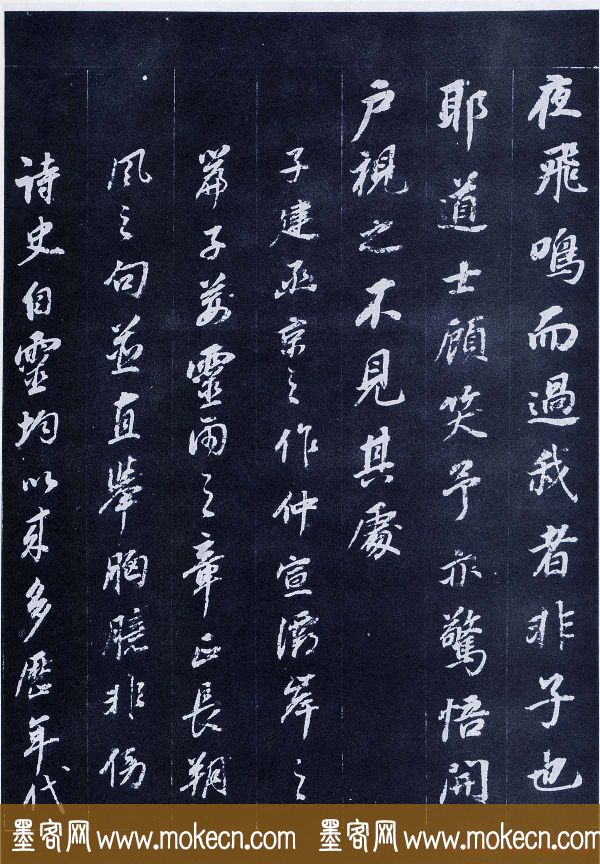 夜飛鳴而過我者非子也
耶道士顧笑予亦驚悟開
户視之不見其處
子建函京之作仲宣灞岸之
篇子荆靈雨之章正長朔
風之句並直舉胸臆非傍
詩史自靈均以來多歷年代
墨客网 www.mokecn.com 墨客网 www.mokecn.com